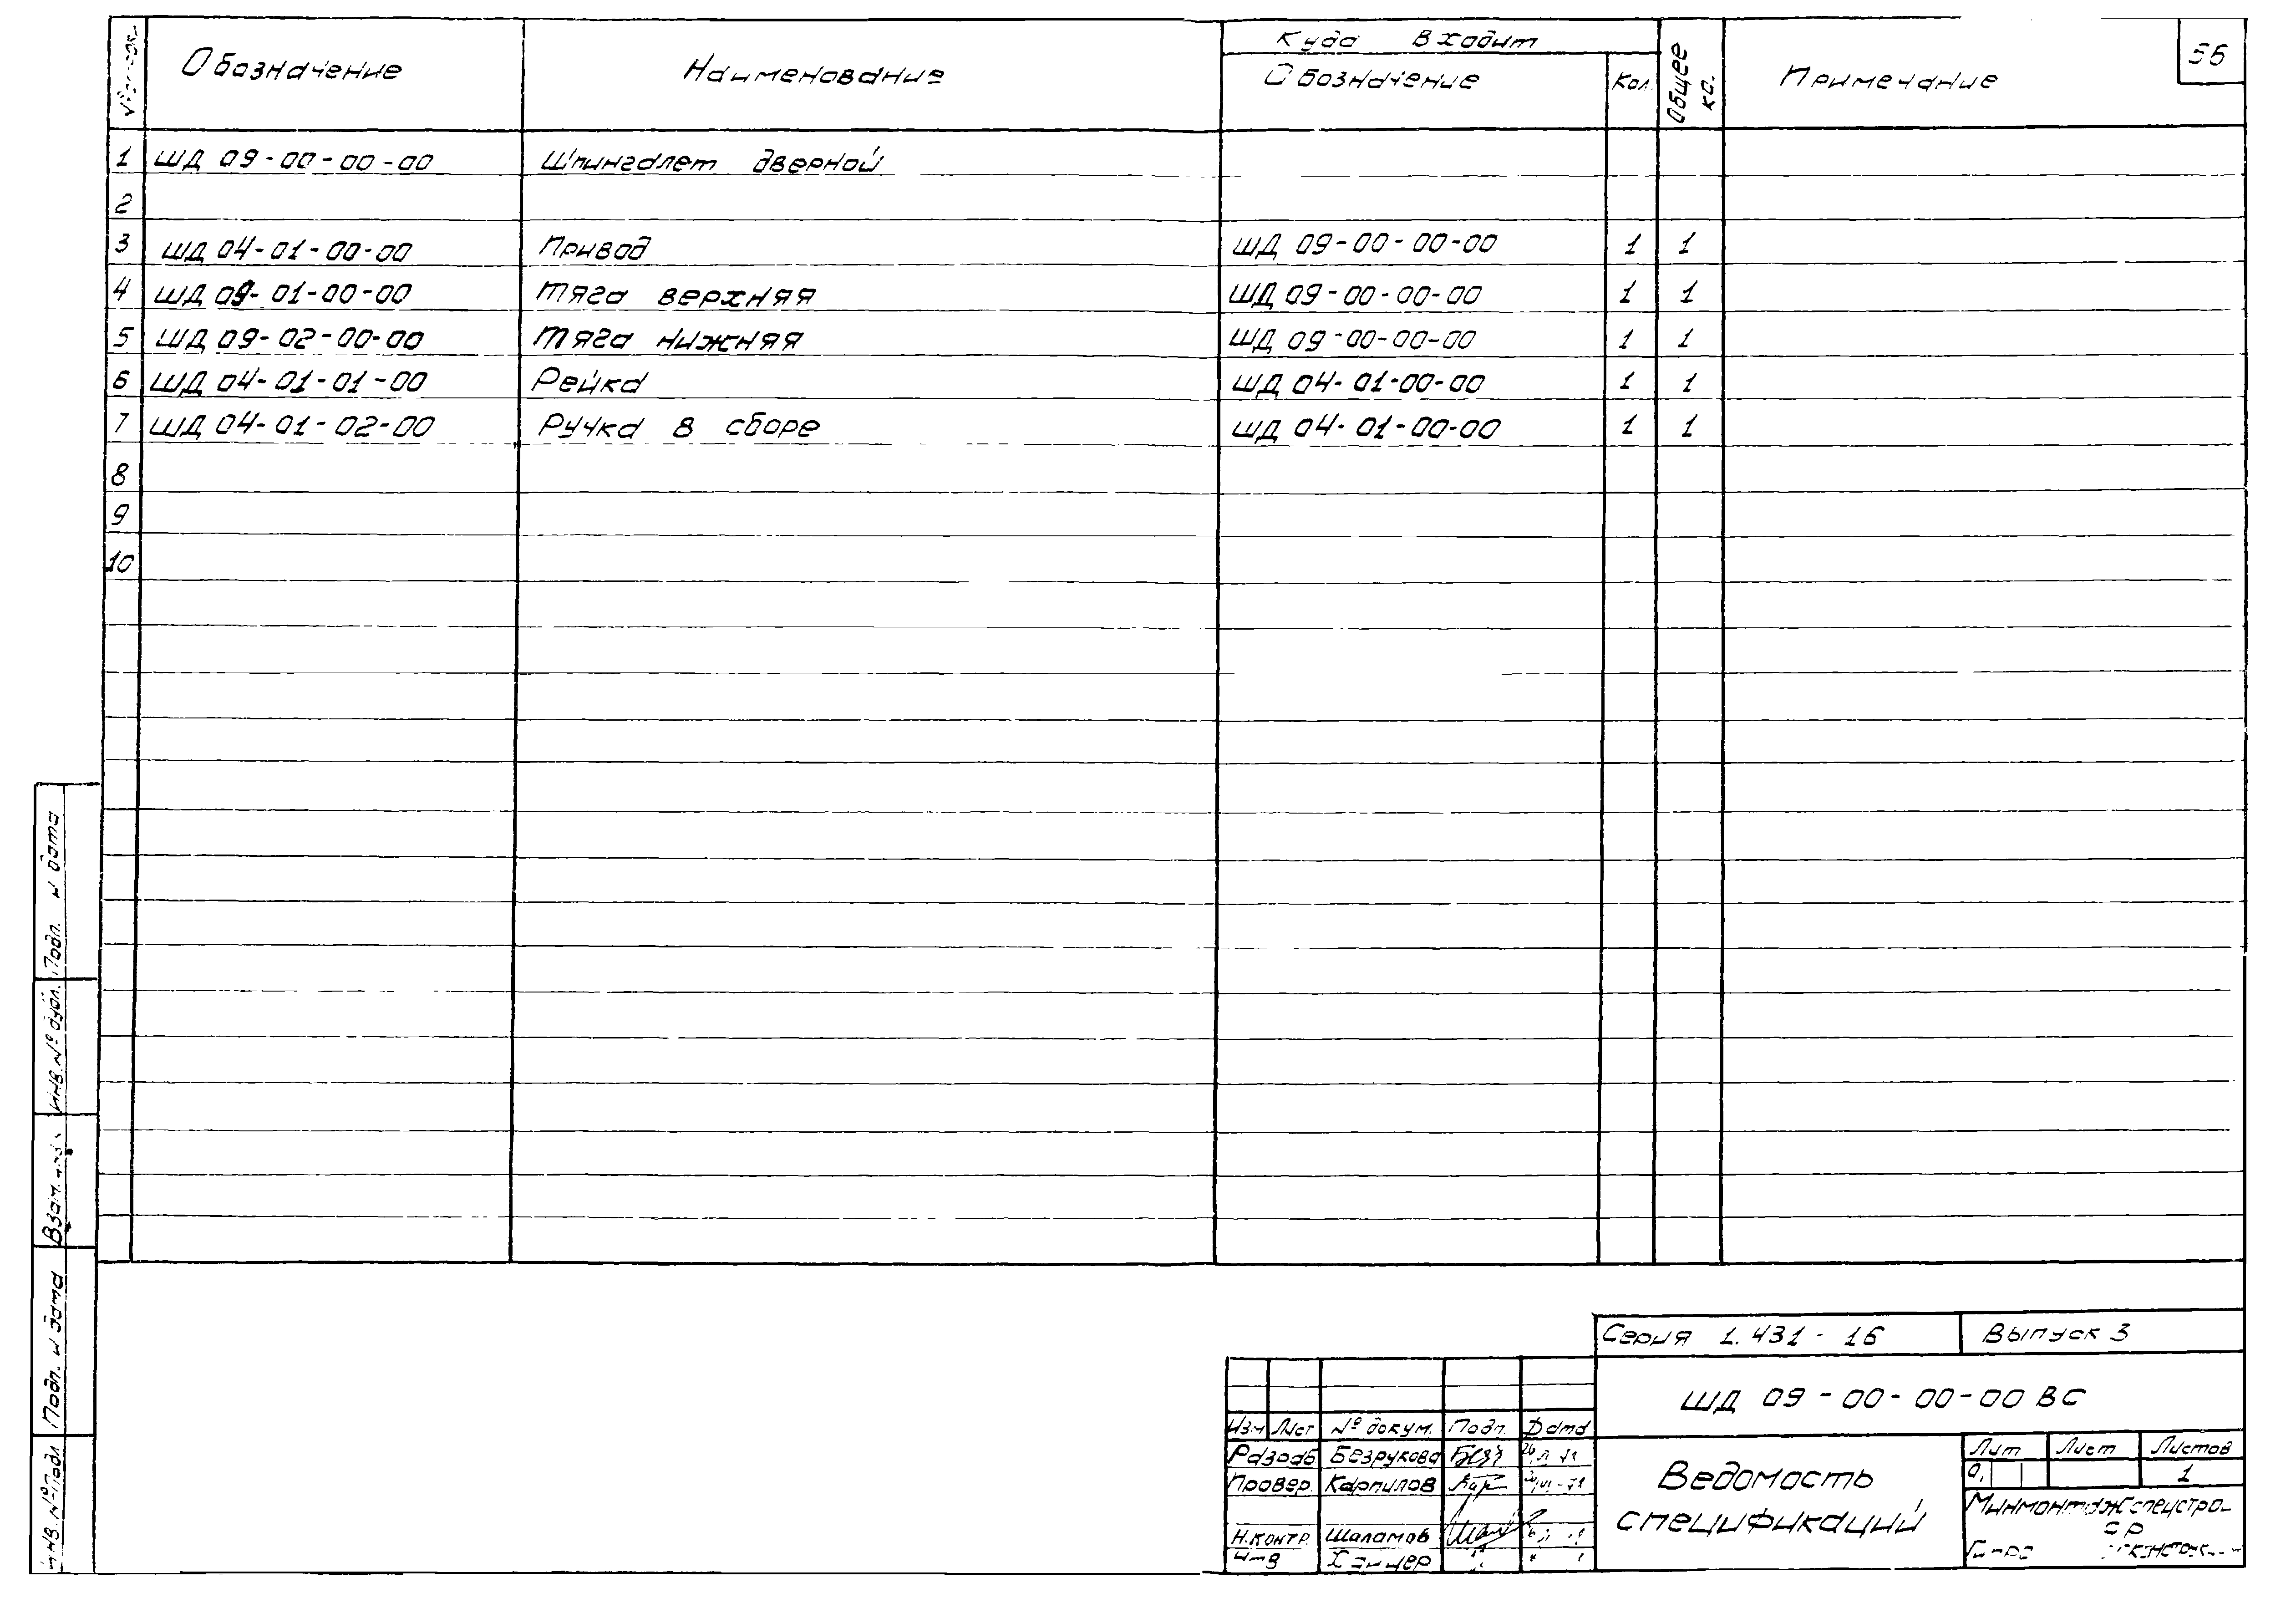 56
Обозначение Наименование Куда входит Обозначение Кол. Общее ко. Примечание
1 ШД 09-00-00-00 Шпингалет дверной
2
3 ШД 04-01-00-00 Привод ШД 09-00-00-00 1 1
4 ШД 09-01-00-00 Тяга верхняя ШД 09-00-00-00 1 1
5 ШД 09-02-00-00 Тяга нижняя ШД 09-00-00-00 1 1
6 ШД 04-01-01-00 Рейка ШД 04-01-00-00 1 1
7 ШД 04-01-02-00 Ручка в сборе ШД 04-01-00-00 1 1
8
9
10
Подп. и дата
Инв. № дубл.
Взам.
Подп. и дата
Инв. № подл
Серия 1.431-16 Выпуск 3
ШД 09-00-00-00 ВС
Изм Лист № докум. Подп. Дата
Разраб Безрукова
Провер. Карпилов
Н.контр. Шаламов
Ведомость
спецификаций
Лит Лист Листов
1
Минмонтажспецстро